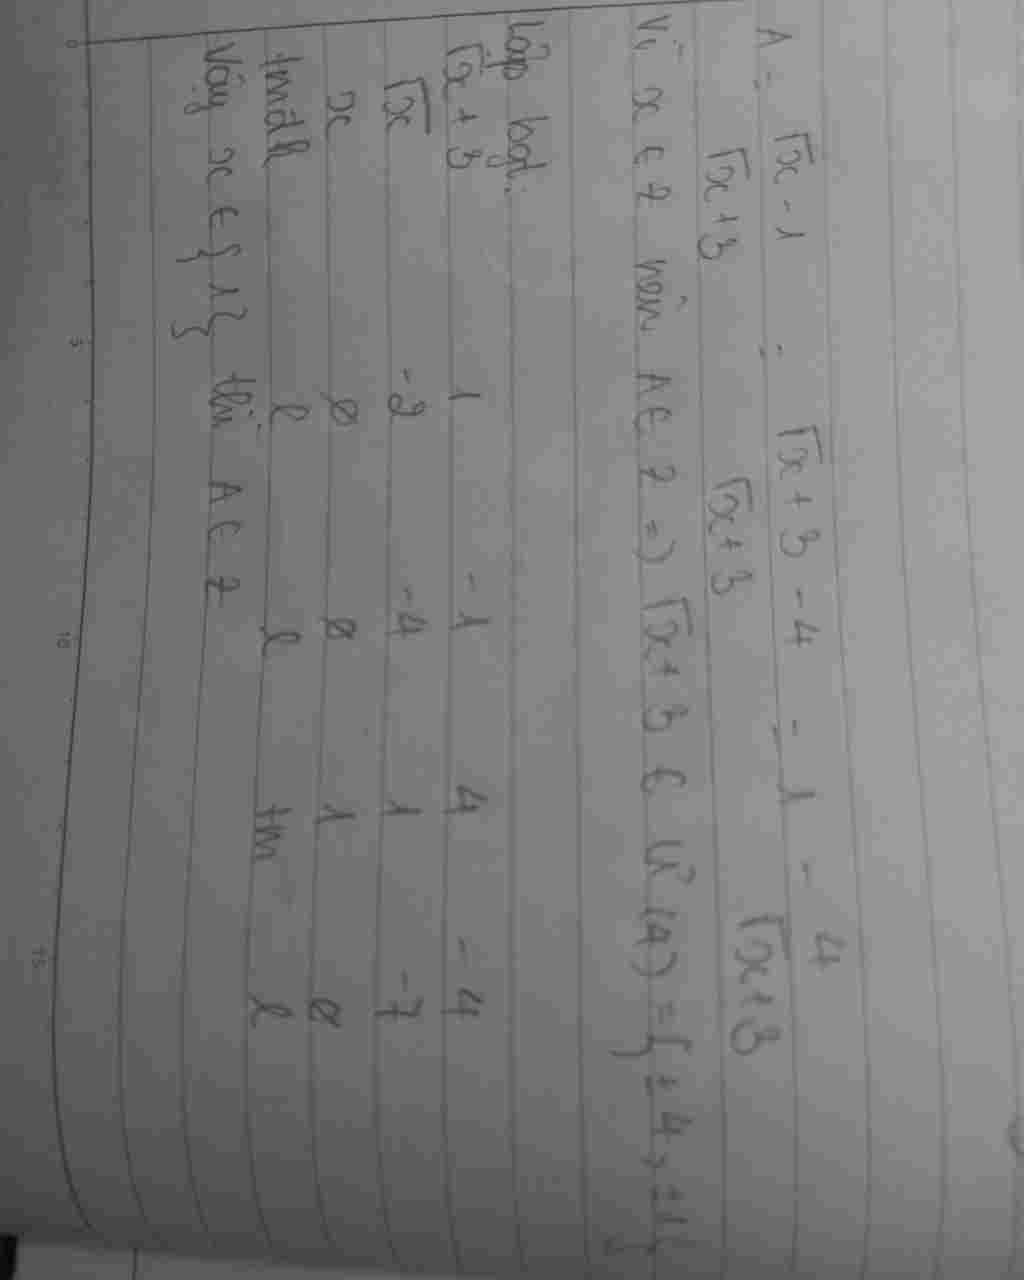 A = √x - 1 / √x + 3 = √x + 3 - 4 / √x + 3 = 1 - 4 / √x + 3
Vì x ∈ Z nên A ∈ Z => √x + 3 ∈ Ư (4) = { ± 4 , ± 1 }
Lập bgt:
√x + 3 1 -1 4 -4
√x -2 -4 1 -7
x ∅ ∅ 1 ∅
tmđk l l tm l
Vậy x ∈ { 1 } thì A ∈ Z
0 5 10 15